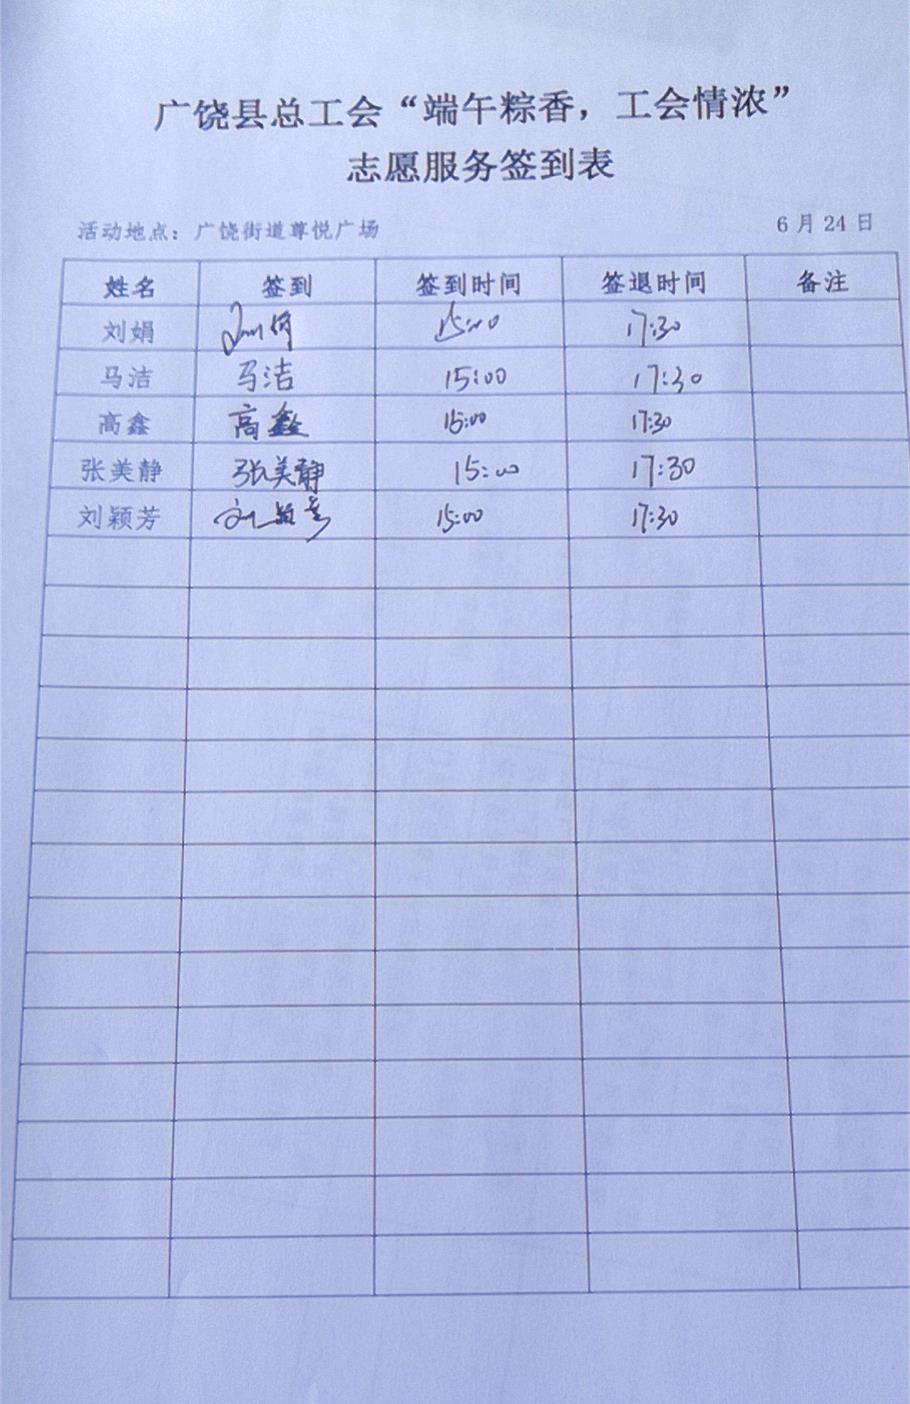 广饶县总工会“端午粽香，工会情浓”
志愿服务签到表
活动地点：广饶街道尊悦广场 6月24日
姓名 签到 签到时间 签退时间 备注
刘娟 15:00 17:30
马洁 马洁 15:00 17:30
高鑫 高鑫 15:00 17:30
张美静 张美静 15:00 17:30
刘颖芳 15:00 17:30